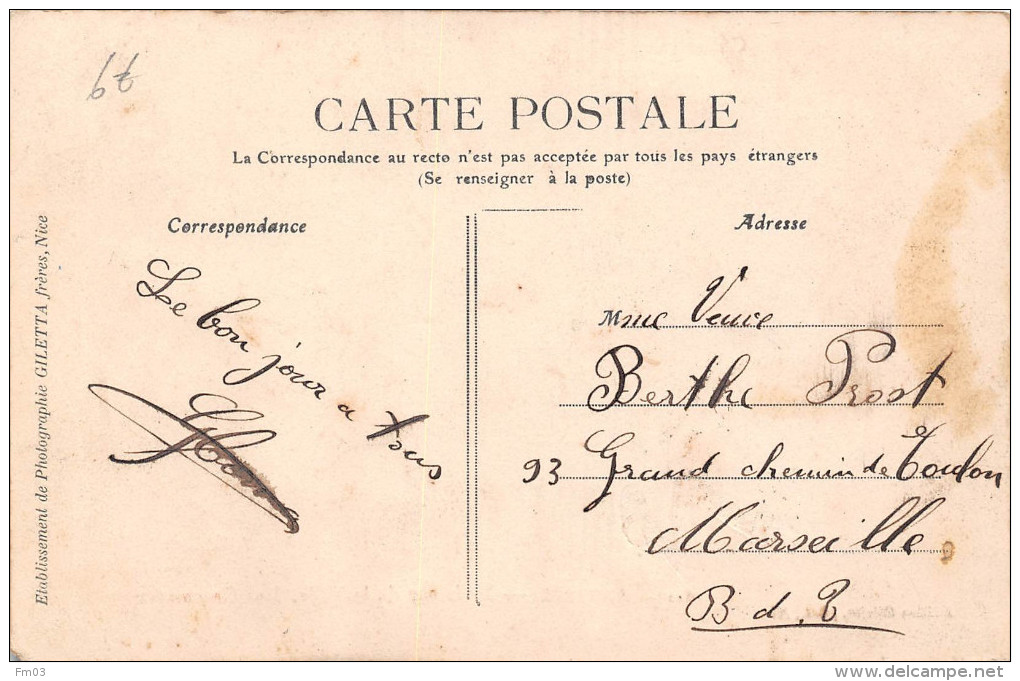 67
CARTE POSTALE
La Correspondance au recto n'est pas acceptée par tous les pays étrangers
(Se renseigner à la poste)
Correspondance
Adresse
Etablissement de Photographie GILETTA frères, Nice
Le bon jour a tous
Mme Veuve
Berthe Prost
93 Grand chemin de Toulon
Marseille
B d. R
Fm03
delcampe.net